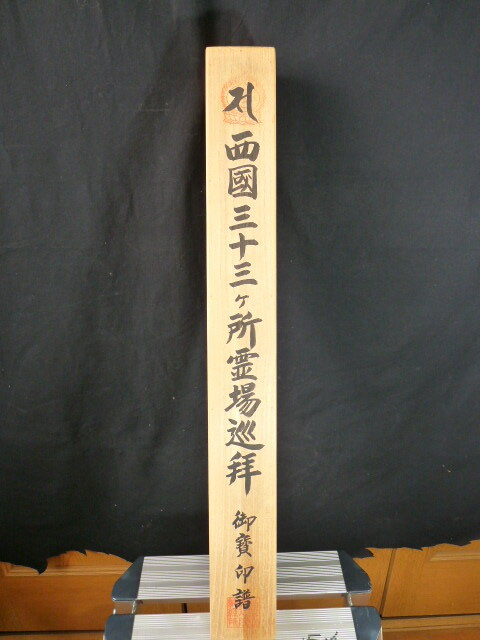 西國三十三ヶ所霊場巡拜
御寶印譜